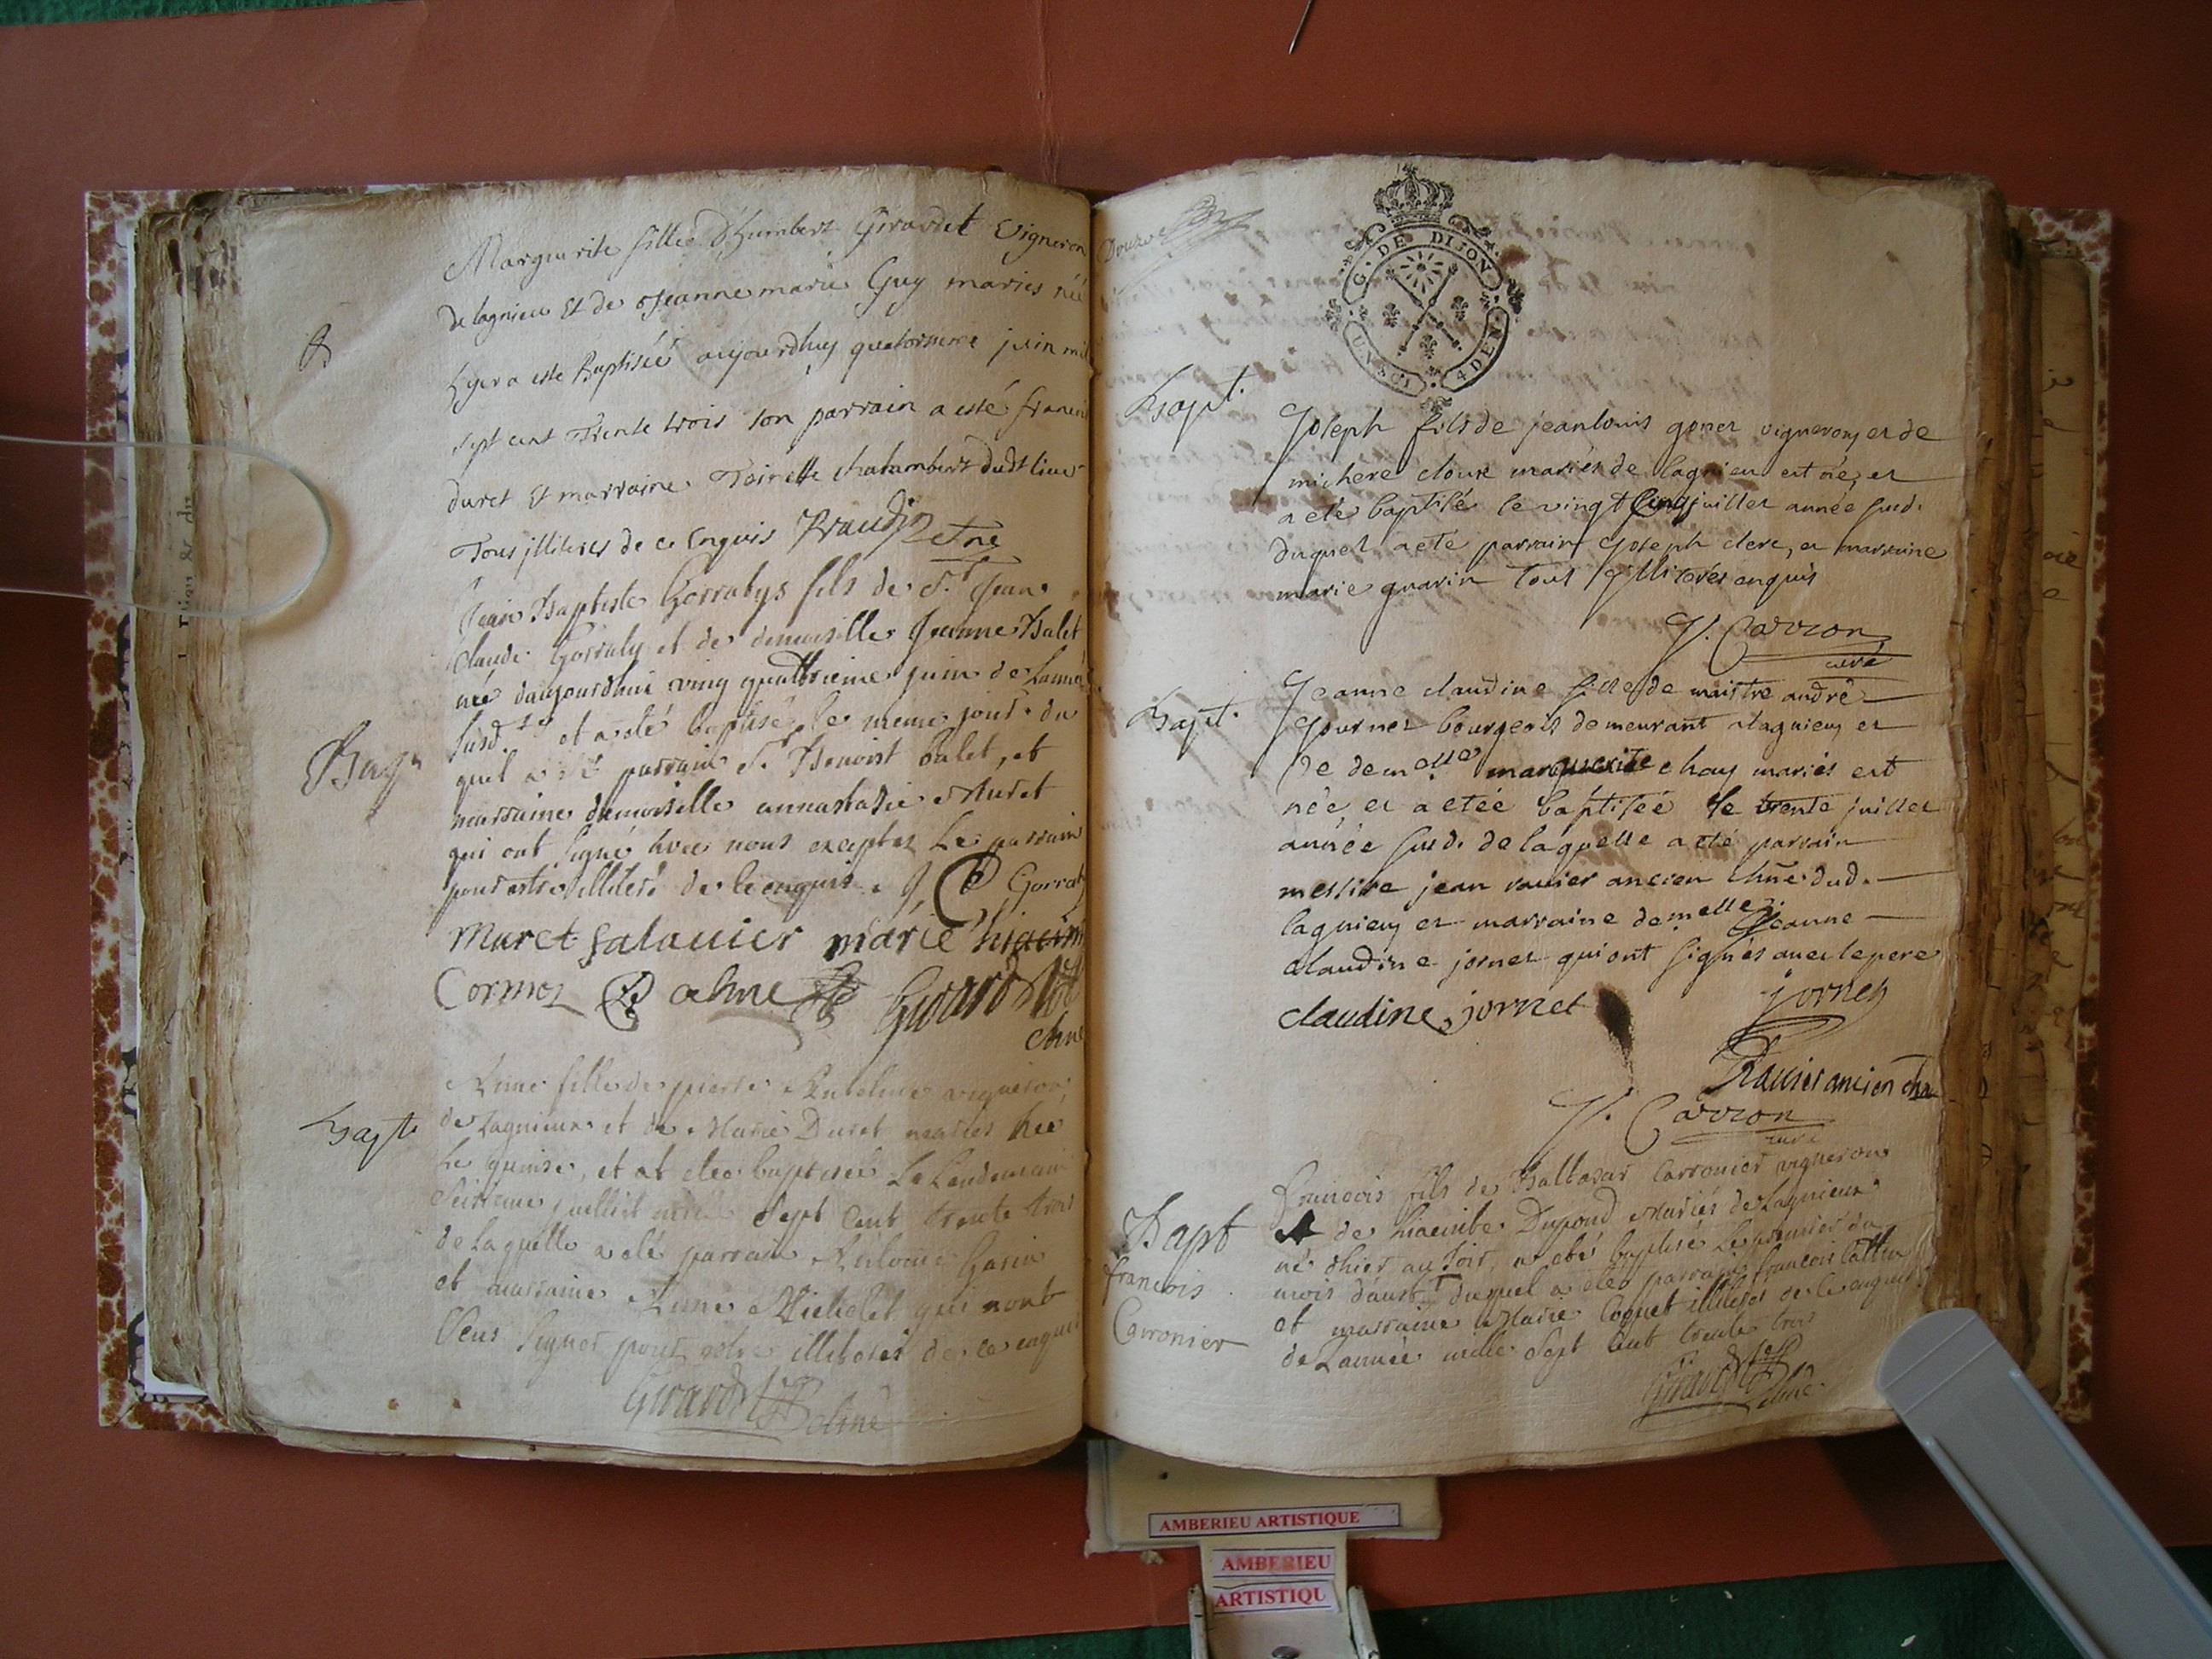 Marguerite fille d'humbert Girardet Vigneron
de lagnieu Et de Jeanne marie Guy maries née
hyer a esté Baptisée aujourdhuy quatorsieme juin mil
sept cent Trente trois son parrain a esté francois
duret Et marraine Toinette chalambert dudt lieu
Tous jlliteres de ce Enquis
B
Jean Baptiste Gorraty fils de Sr. Jean
Claude Gorraty et de demoiselle Jeanne Balet
née daujourdhui ving quattrieme juin de Lannée
susd. et a eté baptisé le meme jour du
quel a eté parrain Sr. Benoist balet, et
marraine demoiselle annastasie Muret
qui ont signé avec nous exceptez Le parrain
pour estre illiteré de ce enquis
Gorraty
Muret galauier marie
Cormoz Girardet
chne
Bapt.
Anne fille de pierre Anthelme vigneron
de Lagnieux et de Marie Duret mariés née
Le quinse, et at etee baptisee Le Lendemain
Seisieme juillet mille Sept Cent trente trois
de Laquelle a eté parrain Antoine Garin
et marraine Anne Michelet qui nont
Sceus Signer pour estre illiteres de ce enquis
Girardet chne
Douze
G. DE DIJON
UN SOL 4 DEN.
Bapt.
Joseph fils de jean louis goner vigneron et de
michere cloux mariés de lagnieu est né, et
a eté baptisé le vingt cinq juillet année susd.
duquel a eté parrain Joseph clerc, et marraine
marie guarin tous illiterés enquis
J. Carron
curé
Bapt.
Jeanne claudine fille de maistre andré
journet bourgeois demeurant a lagnieu et
de demelle marguerite chay mariés est
née, et a etée baptisée le trente juillet
année susd. de laquelle a eté parrain
messire jean rauier ancien chne dud.
lagnieu et marraine demelle Jeanne
claudine jornet qui ont signés avec le pere
claudine jornet jornet
Rauier ancien chne
J. Carron
curé
Bapt
francois
Carronier
francois fils de Baltasar Carronier vigneron
et de hiacinte Dupond Mariés de Lagnieux
né d'hier au soir, a eté baptisé Le premier du
mois d'aust duquel a eté parrain francois Cattin
et marraine Marie Coquet illiterés de ce enquis
de Lannée mille Sept Cent trente trois
Girardet
chne
AMBERIEU ARTISTIQUE
AMBERIEU
ARTISTIQU